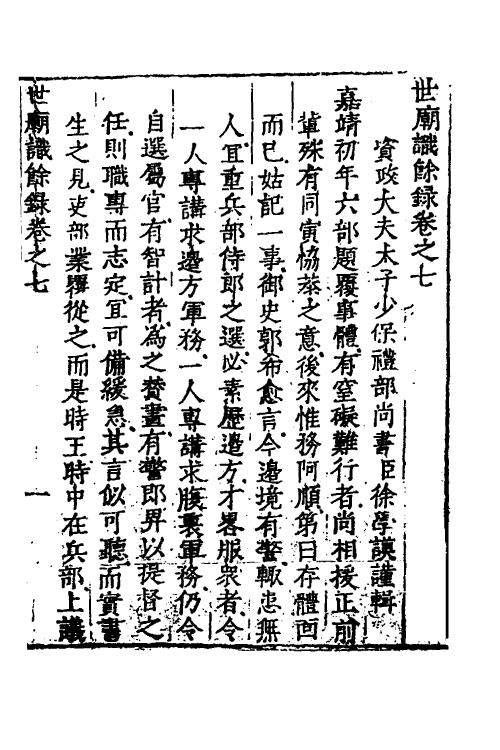 世廟識餘録卷之七
資政大夫太子少保禮部尚書臣徐學謨謹輯
嘉靖初年六部題覆事體有窒礙難行者尚相援正前
輩殊有同寅恊恭之意後來惟務阿順第曰存體面
而已姑記一事御史郭希愈言今邊境有警輙患無
人宜重兵部侍郎之選必素歷邊方才畧服衆者令
一人專講求邊方軍務一人專講求腹裏軍務仍令
自選屬官有智計者為之賛畫有警即畀以提督之
任則職專而志定宜可備緩急其言似可聽而實書
生之見吏部業覆從之而是時王時中在兵部上議
世廟識餘録卷之七
一